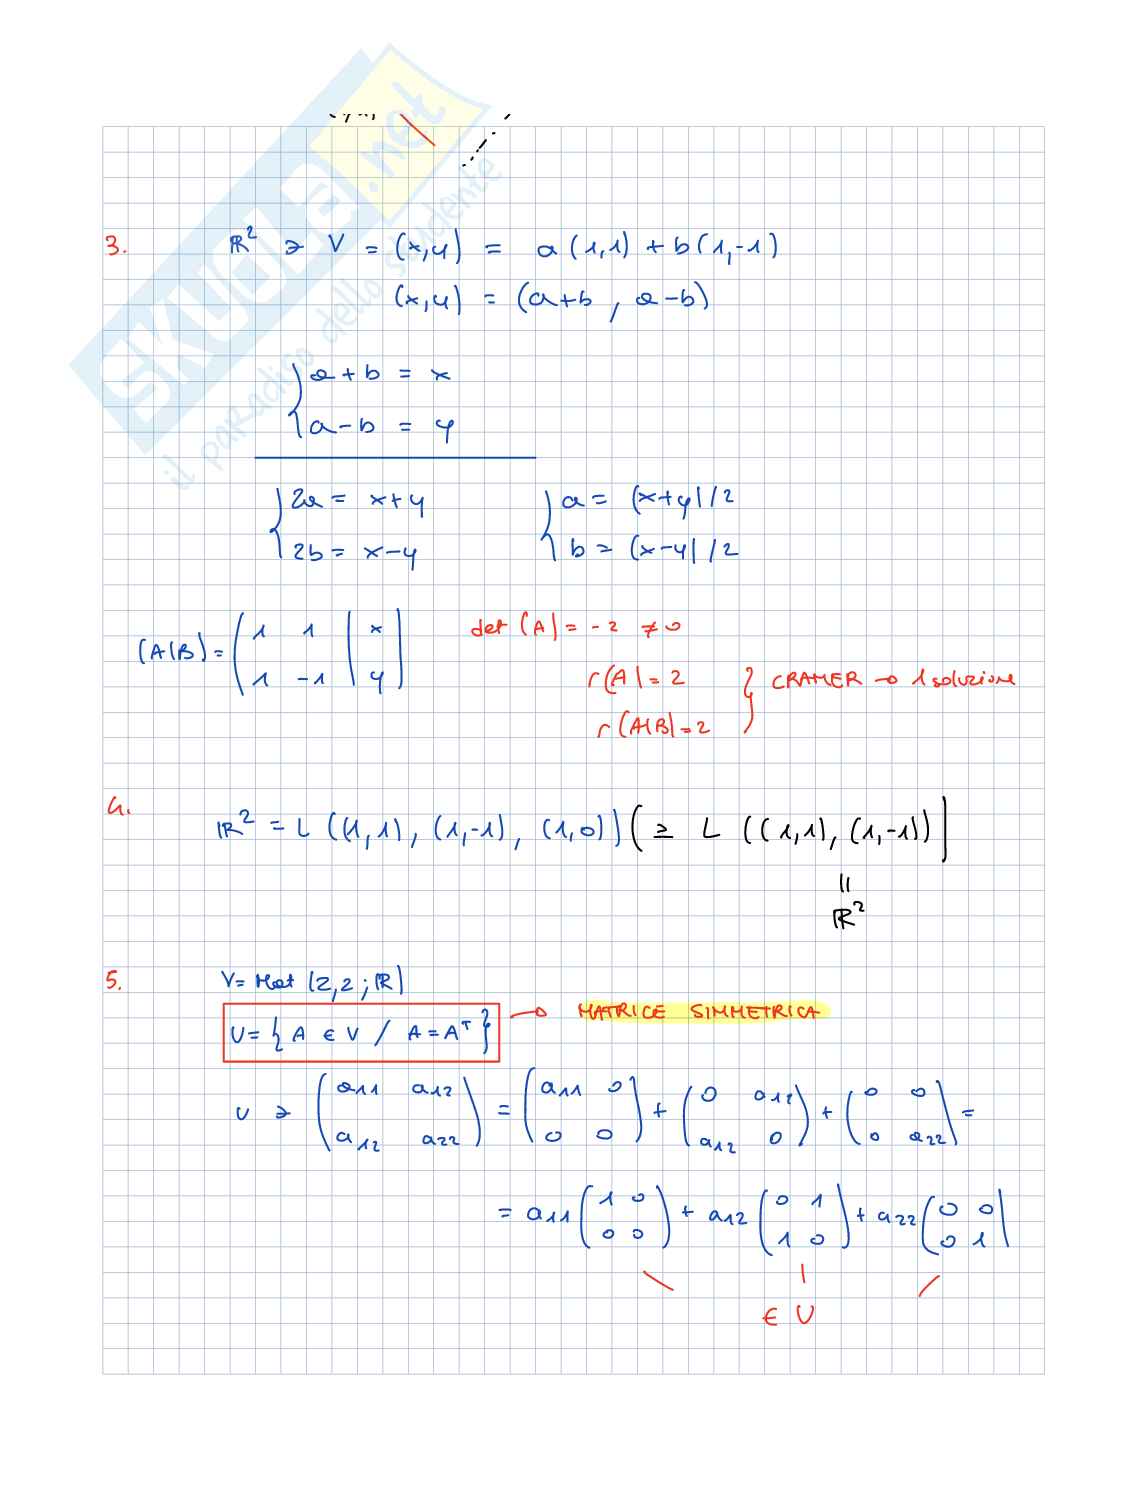 SKUOLA.net
il paradiso dello studente
3. ℝ² ∋ V = (x,y) = a(1,1) + b(1,-1)
(x,y) = (a+b , a-b)
{ a + b = x
{ a - b = y
{ 2a = x+y { a = (x+y)/2
{ 2b = x-y { b = (x-y)/2
(A|B) = ( 1 1 | x ) det (A) = -2 ≠ 0
( 1 -1 | y ) r(A) = 2 } CRAMER → 1 soluzione
r(A|B) = 2
4. ℝ² = L ((1,1), (1,-1), (1,0)) ( ≥ L ((1,1), (1,-1)) )
||
ℝ²
5. V = Mat (2,2; ℝ)
U = { A ∈ V / A = Aᵀ } → MATRICE SIMMETRICA
U ∋ ( a11 a12 ) = ( a11 0 ) + ( 0 a12 ) + ( 0 0 ) =
( a12 a22 ) ( 0 0 ) ( a12 0 ) ( 0 a22 )
= a11 ( 1 0 ) + a12 ( 0 1 ) + a22 ( 0 0 )
( 0 0 ) ( 1 0 ) ( 0 1 )
∈ U